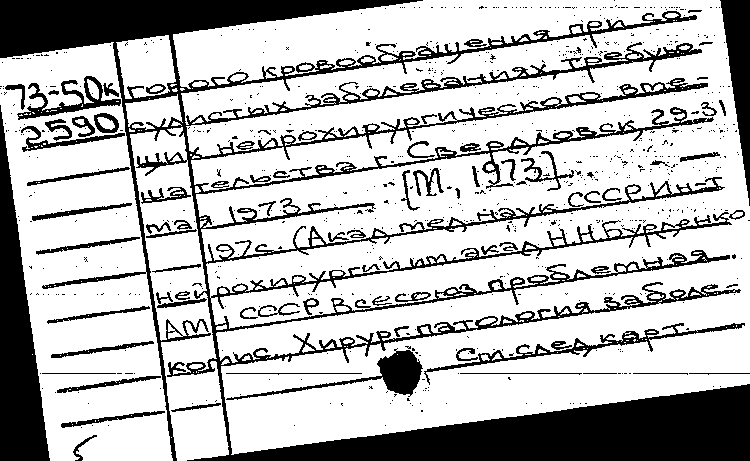 73-50к гового кровообращения при со-
2590 судистых заболеваниях, требую-
щих нейрохирургического вме-
шательства г. Свердловск, 29-31
мая 1973 г. [М., 1973]
197с. (Акад мед наук СССР Ин-т
нейрохирургии им. акад Н.Н.Бурденко
АМН СССР. Всесоюз проблемная
комис. „Хирург. патология заболе-
См. след карт.
5